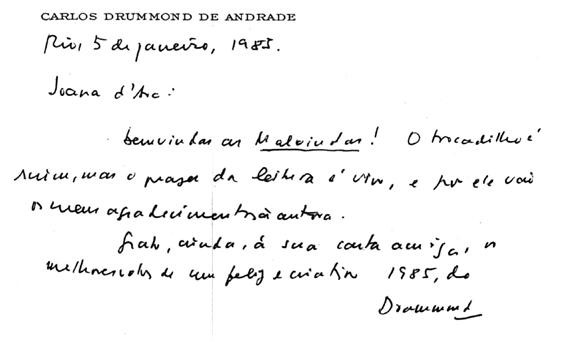 CARLOS DRUMMOND DE ANDRADE
Rio, 5 de janeiro, 1985.
Joana d'Arc:
Benvindas as Malvindas! O trocadilho é
ruim, mas o prazer da leitura é vivo, e por ele vão
os meus agradecimentos à autora.
Grato, ainda, à sua carta amiga, os
melhores votos de um feliz e criativo 1985, do
Drummond